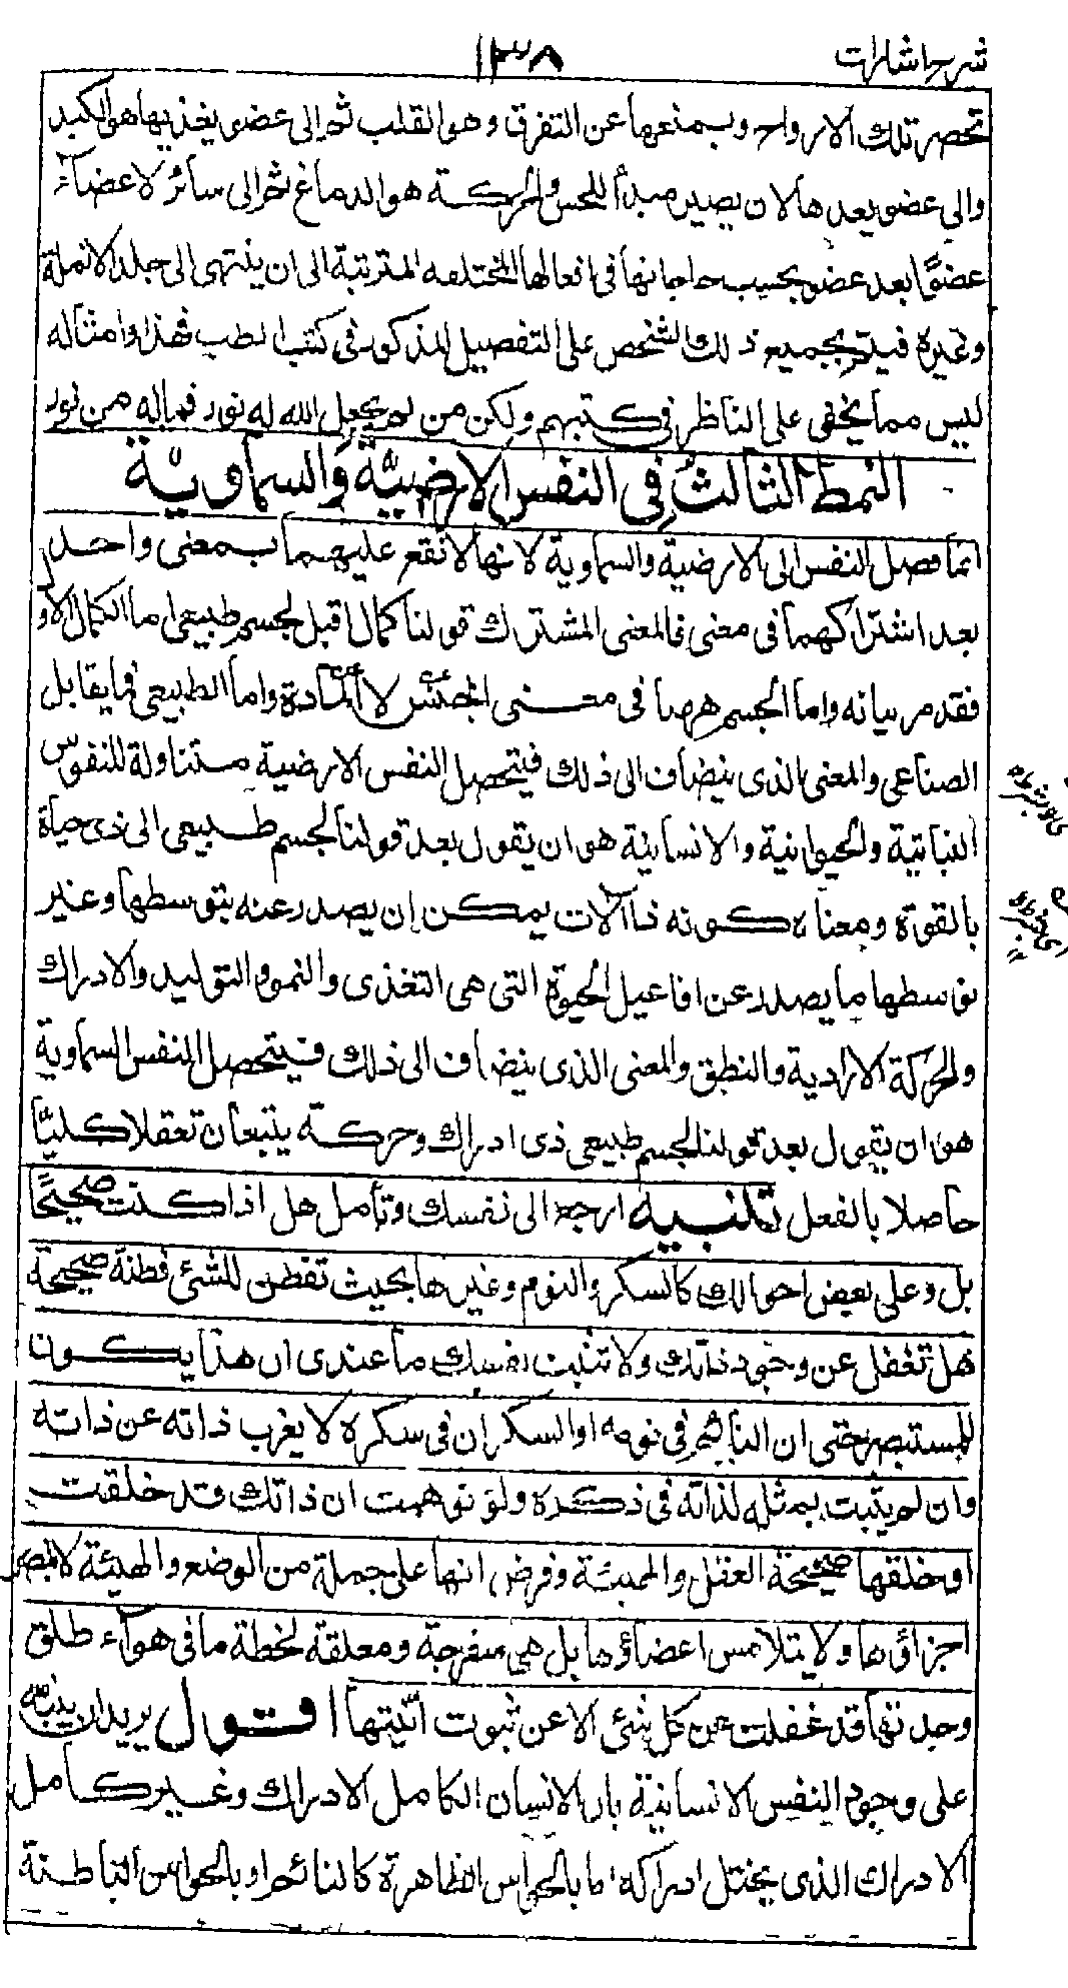 شرح اشارات
١٣٨
تحصر تلك الارواح ويمنعها عن التفرق وهو القلب ثم الى عضو يغذيها هو الكبد
والى عضو يعدها لان يصير مبدأ للحس والحركة هو الدماغ ثم الى سائر الاعضاء
عضوًا بعد عضو بحسب حاجاتها فى افعالها المختلفه المترتبة الى ان ينتهى الى جلد الانملة
وغيره فيتم بجميع ذلك الشخص على التفصيل المذكور فى كتب الطب فهذا وامثاله
ليس مما يخفى على الناظر فى كتبهم ولكن من لم يجعل الله له نور فماله من نور
النمط الثالث فى النفس الارضية والسماوية
انما فصل النفس الى الارضية والسماوية لانها لا تقع عليهما بمعنى واحد
بعد اشتراكهما فى معنى فالمعنى المشترك قولنا كمال اول لجسم طبيعى اما الكمال الاول
فقد مر بيانه واما الجسم ههنا فى معنى الجنس لا المادة واما الطبيعى فما يقابل
الصناعى والمعنى الذى ينضاف الى ذلك فيتحصل النفس الارضية متناولة للنفوس
النباتية والحيوانية والانسانية هو ان يقول بعد قولنا لجسم طبيعى الى ذى حياة
بالقوة ومعناه كونه ذا آلات يمكن ان يصدر عنه بتوسطها وغير
توسطها ما يصدر عن افاعيل الحيوة التى هى التغذى والنمو والتوليد والادراك
والحركة الارادية والنطق والمعنى الذى ينضاف الى ذلك فيتحصل النفس السماوية
هو ان يقول بعد قولنا لجسم طبيعى ذى ادراك وحركة يتبعان تعقلا كليًّا
حاصلا بالفعل تنبيه ارجع الى نفسك وتأمل هل اذا كنت صحيحًا
بل وعلى بعض احوالك كالسكر والنوم وغيرها بحيث تفطن للشئ فطنة صحيحة
هل تغفل عن وجود ذاتك ولا تثبت نفسك ما عندى ان هذا يكون
للمستبصر حتى ان النائم فى نومه او السكران فى سكره لا يغرب ذاته عن ذاته
وان لم يثبت بمثله لذاته فى ذكره ولو توهمت ان ذاتك قد خلقت
او خلقها صحيحة العقل والهيئة وفرض انها على جملة من الوضع والهيئة لا تبصر
اجزاؤها ولا يتلامس اعضاؤها بل هى منفرجة ومعلقة لحظة ما فى هوآء طلق
وجدتها قد غفلت عن كل شئ الا عن ثبوت انّيتها اقول يريد ان ينبّه
على وجود النفس الانسانية بان الانسان الكامل الادراك وغير كامل
الادراك الذى يختل ادراكه اما بالحواس الظاهرة كالنائم او بالحواس الباطنة